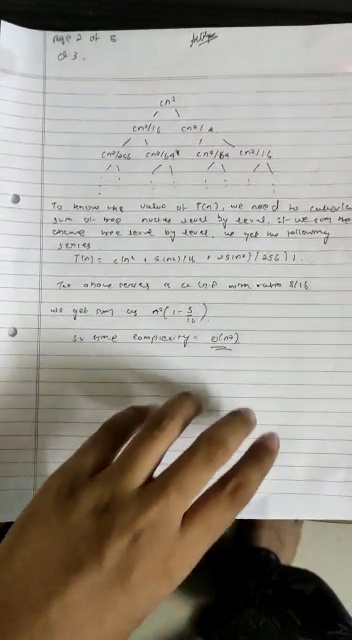 Page 2 of 5
Q 3.
cn²
cn²/16 cn²/4
cn²/256 cn²/64 cn²/64 cn²/16
To know the value of T(n), we need to calculate
sum of tree nodes level by level. If we sum the
above tree level by level, we get the following
series
T(n) = c(n² + 5(n²)/16 + 25(n²)/256) + .
The above series is a G.P with ratio 5/16
we get sum as n²(1 - 5/16)
So time complexity = O(n²)